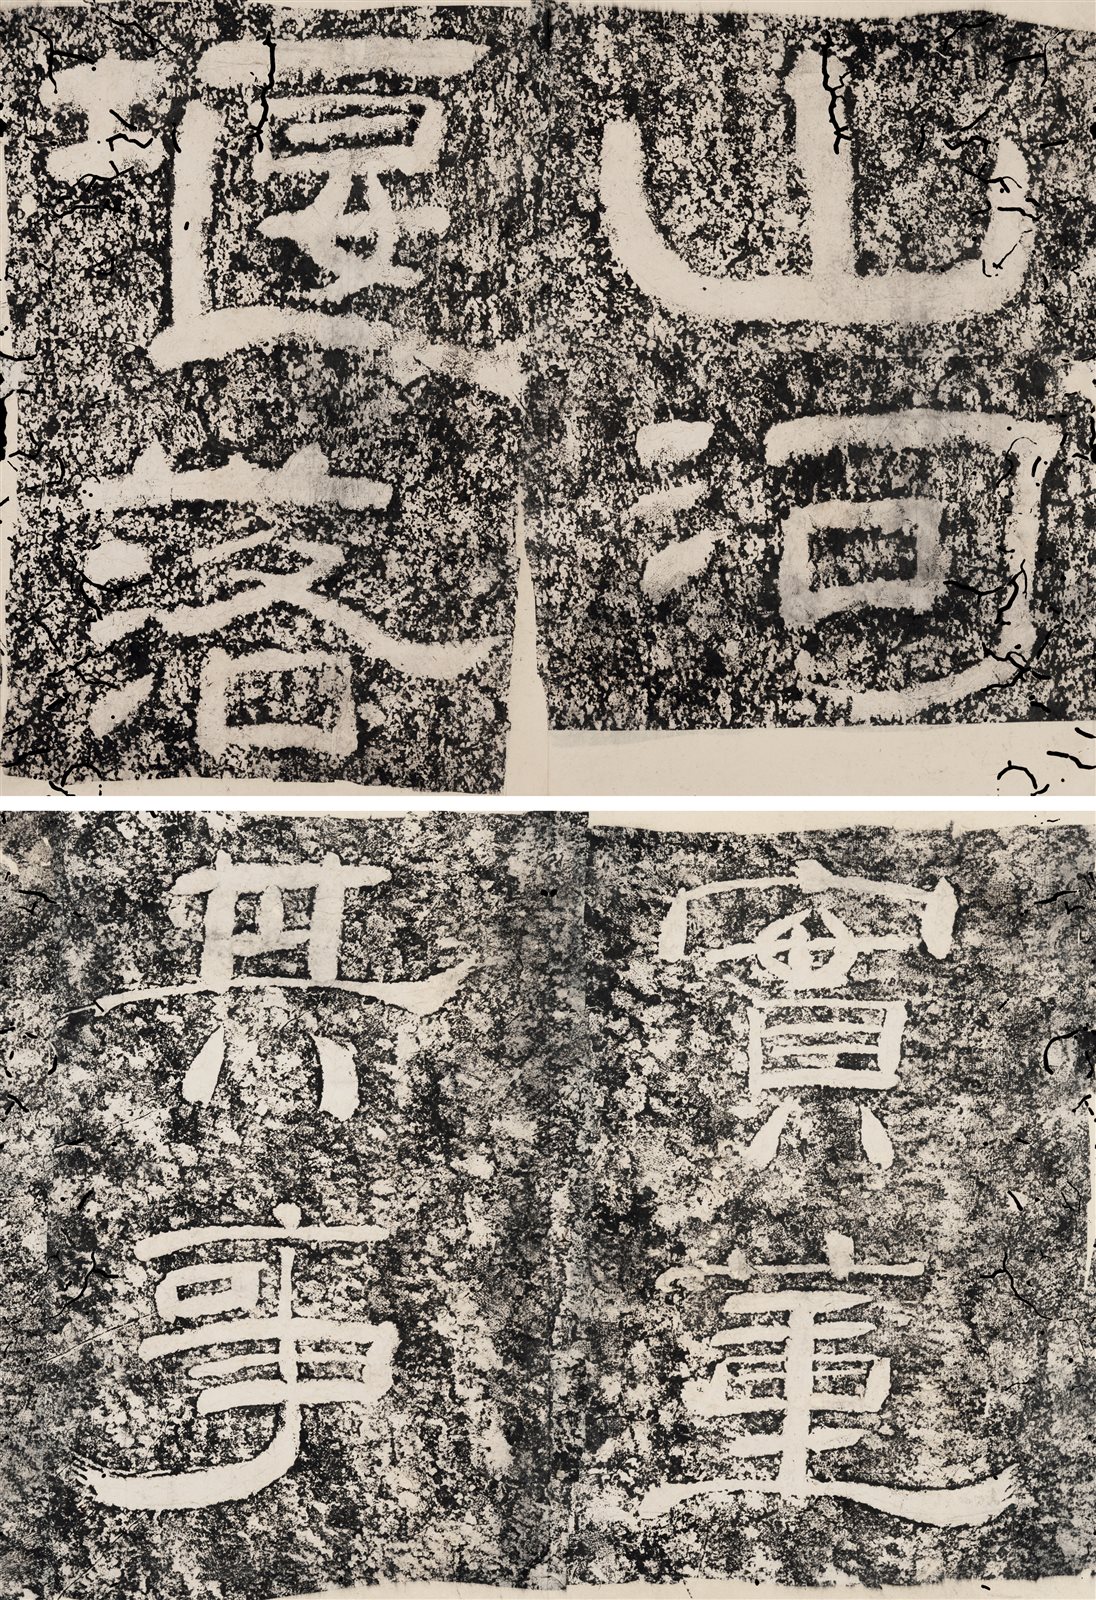 山河
堰落
實董
其事